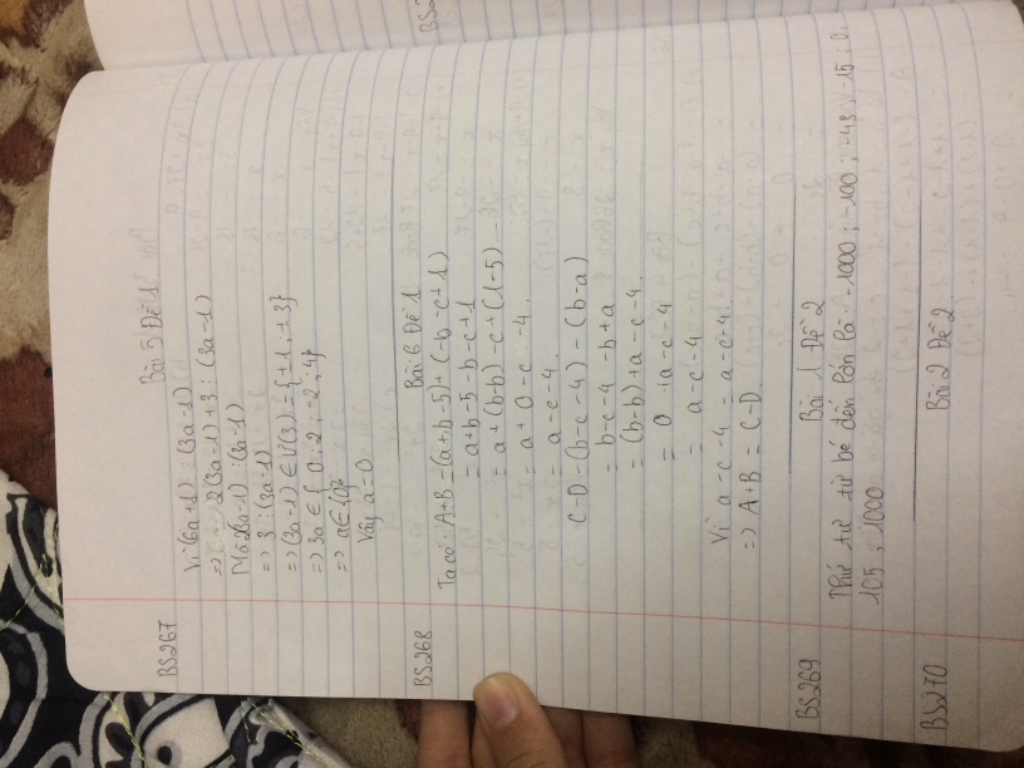 BS267
Bài 5 Đề 1
Vì (6a+1) ⋮ (3a-1)
=> 2(3a-1)+3 ⋮ (3a-1)
Mà 2(3a-1) ⋮ (3a-1)
=> 3 ⋮ (3a-1)
=> (3a-1) ∈ Ư(3) = {±1; ±3}
=> 3a ∈ {0; 2; -2; 4}
=> a ∈ {0}
Vậy a=0
BS268
Bài 6 Đề 1
Ta có: A+B = (a+b-5)+(-b-c+1)
= a+b-5-b-c+1
= a+(b-b)-c+(1-5)
= a+0-c-4.
= a-c-4.
C-D = (b-c-4)-(b-a)
= b-c-4-b+a
= (b-b)+a-c-4.
= 0 +a-c-4
= a-c-4
Vì a-c-4 = a-c-4.
=> A+B = C-D.
BS269
Bài 1 Đề 2
Thứ tự từ bé đến lớn là -1000; -100; -43; -15; 0;
105; 1000
BS270
Bài 2 Đề 2